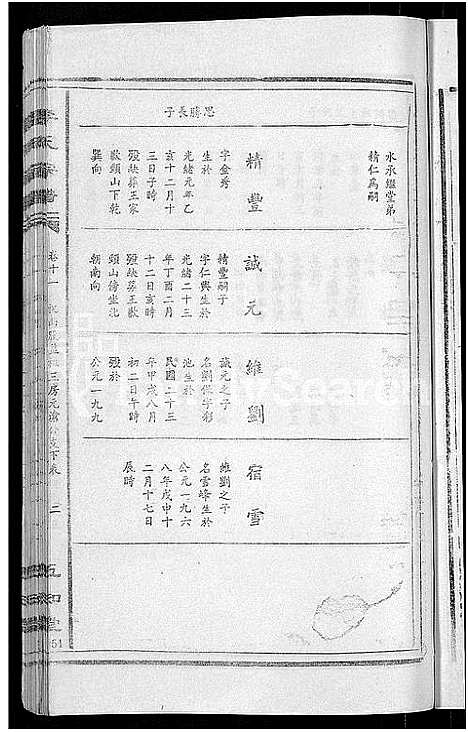 水承繼堂弟
精仁為嗣
思勝長子
精豐
字金秀
生於
光緒元年乙
亥十二月十
三日子時
歿缺葬王家
歐頭山下乾
巽向
誠元
精豐嗣子
字仁興生於
光緒二十三
年丁酉二月
十二日亥時
歿缺葬王歐
頭山傍坐北
朝南向
維劉
誠元之子
名劉保字彩
池生於
民國二十三
年甲戌八月
初二日午時
歿於
公元一九九
宿雪
維劉之子
名雪峰生於
公元一九六
八年戊申十
二月十七日
辰時
氏宗譜
卷十一
二
五知堂
51